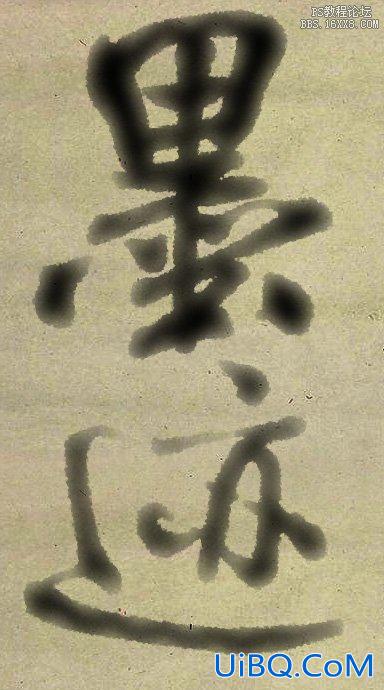 PS教程论坛
BBS.16XX8.COM
墨
迹
UiBQ.CoM